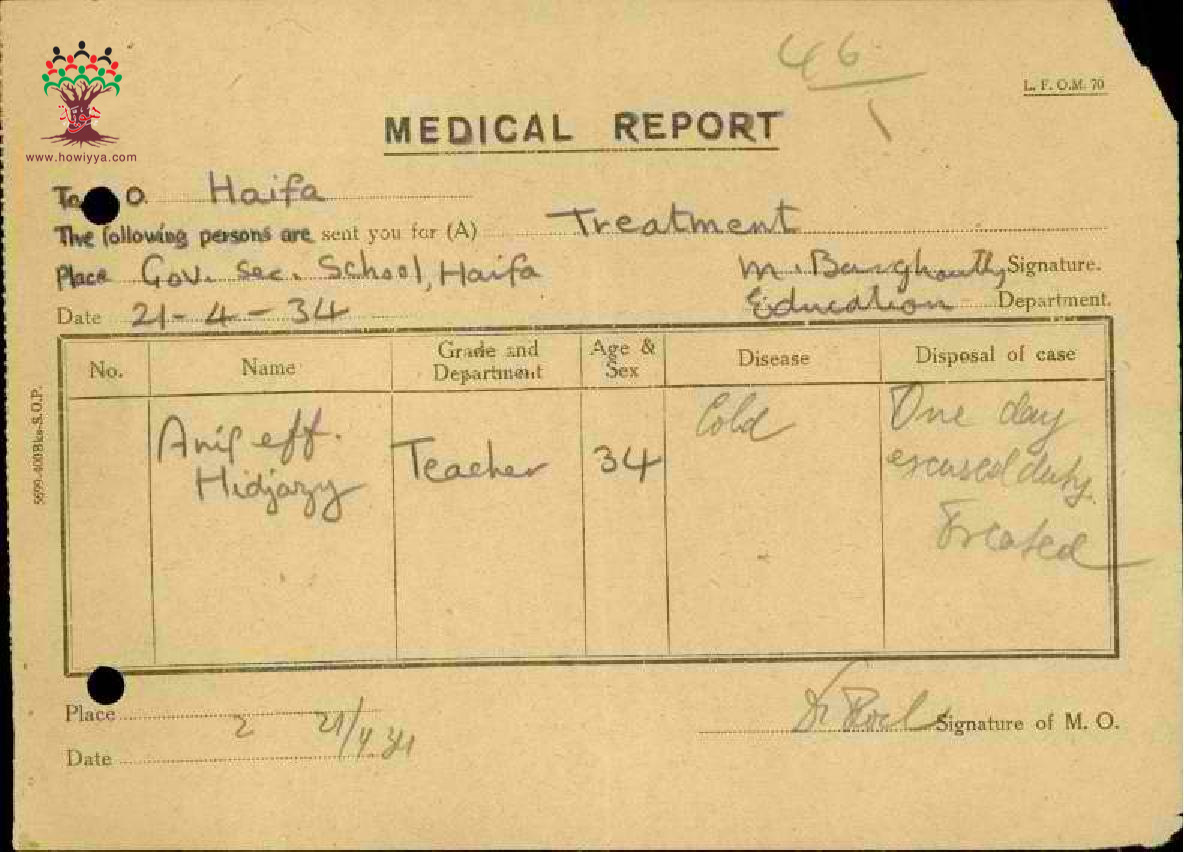 46
1
L. F. O.M. 70
www.howiyya.com
MEDICAL REPORT
To O. Haifa
The following persons are sent you for (A) Treatment
Place Gov. Sec. School, Haifa M. Barghouthy Signature.
Date 21-4-34 Education Department.
No. Name Grade and Department Age & Sex Disease Disposal of case
Anif eff. Hidjazy Teacher 34 Cold One day
excused duty.
Treated
5699-400 Bks-S.O.P.
Place
Date 21/4 34
Dr Signature of M. O.